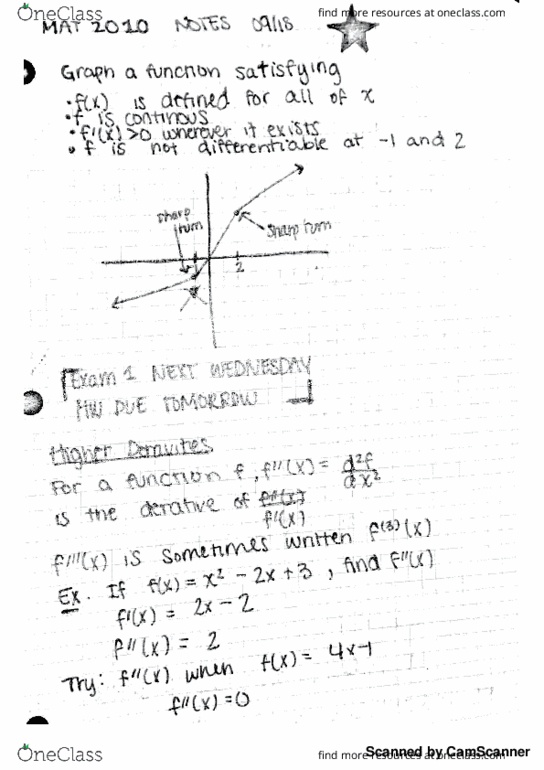 OneClass
find more resources at oneclass.com
MAT 2010 NOTES 09/18
Graph a function satisfying
• f(x) is defined for all of x
• f is continous
• f'(x) >0 wherever it exists
• f is not differentiable at -1 and 2
sharp turn
sharp turn
2
Exam 1 NEXT WEDNESDAY
HW DUE TOMORROW
Higher Derivites
For a function f, f''(x) = d²f/dx²
is the derative of f''(x)
f'(x)
f'''(x) is sometimes written f⁽³⁾(x)
Ex. If f(x) = x² - 2x + 3, find f''(x)
f'(x) = 2x - 2
f''(x) = 2
Try: f''(x) when f(x) = 4x-1
f''(x) = 0
OneClass
find more resources at oneclass.com
Scanned by CamScanner